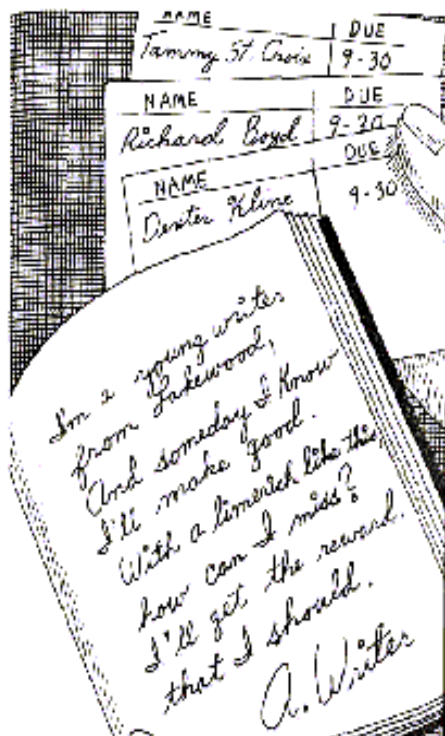 NAME DUE
Tammy St. Croix 9-30
NAME DUE
Richard Boyd 9-30
NAME DUE
Dexter Kline 9-30
I'm a young writer
from Lakewood,
And someday I know
I'll make good.
With a limerick like this,
how can I miss?
I'll get the reward
that I should.
A. Writer